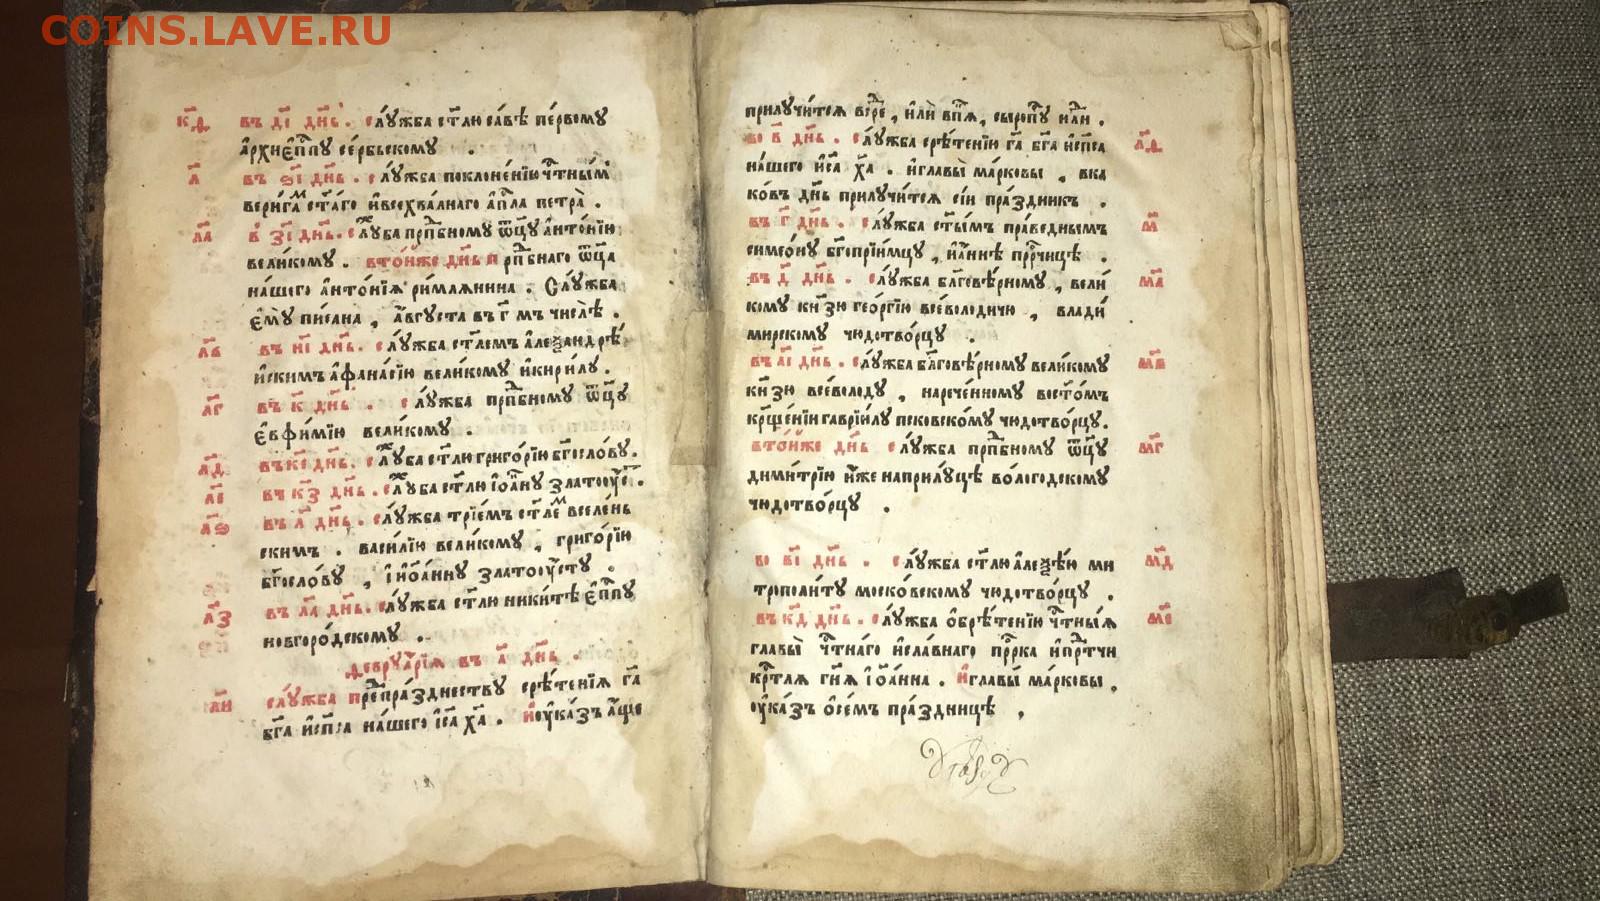 COINS.LAVE.RU
к҃д въ д҃і дн҃ь . слу́жба ст҃лю са́вѣ пе́рвому
а҆рхиєп҃пу се́рбьскому .
л҃ въ ѕ҃і дн҃ь . слу́жба поклоне́нїю чт҃ны́мъ
вери́гамъ ст҃а́го и҆всехва́лнаго а҆п҃ла петра̀ .
л҃а в з҃і дн҃ь . слу́жба прп҃бному ѿц҃у а҆нто́нїю
вели́кому . вто́йже дн҃ь прп҃бнаго ѿц҃а
на́шего а҆нто́нїѧ ри́млѧнина . Слу́жба
є҆му̀ пи́сана , а҆́вгуста въ г҃ мъ числѣ̀ .
л҃в въ и҃і дн҃ь . слу́жба ст҃лемъ а҆леѯандрѣ́
и҆скимъ а҆фана́сїю вели́кому и҆кири́лу .
л҃г въ к҃ дн҃ь . слу́жба прп҃бному ѿц҃у
є҆вфи́мїю вели́кому .
л҃д въ к҃е дн҃ь . слу́жба ст҃лю григо́рїю бг҃осло́ву .
л҃е въ к҃з дн҃ь . слу́жба ст҃лю і҆ѡа́нну златоу́с .
л҃ѕ въ л҃ дн҃ь . слу́жба трїе́мъ ст҃лемъ вселе́нь
скимъ . васи́лїю вели́кому , григо́рїю
бг҃осло́ву , і҆ і҆ѡа́нну златоу́сту .
л҃з въ л҃а дн҃ь . слу́жба ст҃лю ники́тѣ є҆п҃пу
новгоро́дскому .
февруа́рїѧ въ а҃ дн҃ь .
л҃и слу́жба препра́зднеству срѣ́тенїѧ г҃а
бг҃а и҆сп҃са на́шего і҆с҃а х҃а . и҆оу҆ка́зъ а҆́ще
прилучи́тсѧ всре , и҆лѝ впн҃ , сыропу и҆лѝ .
во в҃ дн҃ь . слу́жба срѣ́тенїю г҃а бг҃а и҆сп҃са л҃ѳ
на́шего і҆с҃а х҃а . и҆главы̀ ма́рковы , вка
ко́въ дн҃ь прилучи́тсѧ сїи пра́здникъ .
въ г҃ дн҃ь . слу́жба ст҃ы́мъ пра́веднымъ м҃
симео́ну бг҃опрїи́мцу , и҆а́ннѣ прⷪ҇ро́чицѣ .
въ д҃ дн҃ь . слу́жба бл҃говѣ́рному , вели́ м҃а
кому кн҃зю гео́ргїю все́володичю , влади́
мирскому чюдотво́рцу .
въ а҃і дн҃ь . слу́жба бл҃говѣ́рному вели́кому м҃в
кн҃зю все́володу , нарече́нному восто́мъ
крщ҃е́нїи гаврїи́лу псковско́му чюдотво́рцу .
вто́йже дн҃ь слу́жба прп҃бному ѿц҃у м҃г
дими́трїю и҆́же наприлу́цѣ во́логодскому
чюдотво́рцу .
во в҃і дн҃ь . слу́жба ст҃лю а҆леѯѣ́ю ми м҃д
трополи́ту моско́вскому чюдотво́рцу .
въ к҃д дн҃ь . слу́жба ѡ҆брѣ́тенїю чт҃ны́ѧ м҃е
главы̀ чт҃на́го и҆сла́внаго прⷪ҇ро́ка и҆прⷣ҇тчи
крт҃лѧ гн҃ѧ і҆ѡа́нна . и҆главы̀ ма́рковы .
оу҆ка́зъ ѡ҆се́мъ пра́здницѣ .